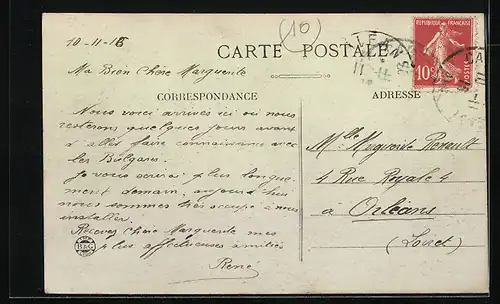 (10)
10-11-15
CARTE POSTALE
REPUBLIQUE FRANÇAISE
10c
POSTES
Ma Bien Chère Marguerite
CORRESPONDANCE
ADRESSE
Nous voici arrivés ici où nous
resterons quelques jours avant
d'aller faire connaissance avec
les Bulgares.
Je vous écrirai plus longue-
ment demain, aujourd'hui
nous sommes très occupé à nous
installer.
Recevez Chère Marguerite mes
plus affectueuses amitiés
René
B&G
Mlle Marguerite
4 Rue Royale 4
à Orléans
(Loiret)